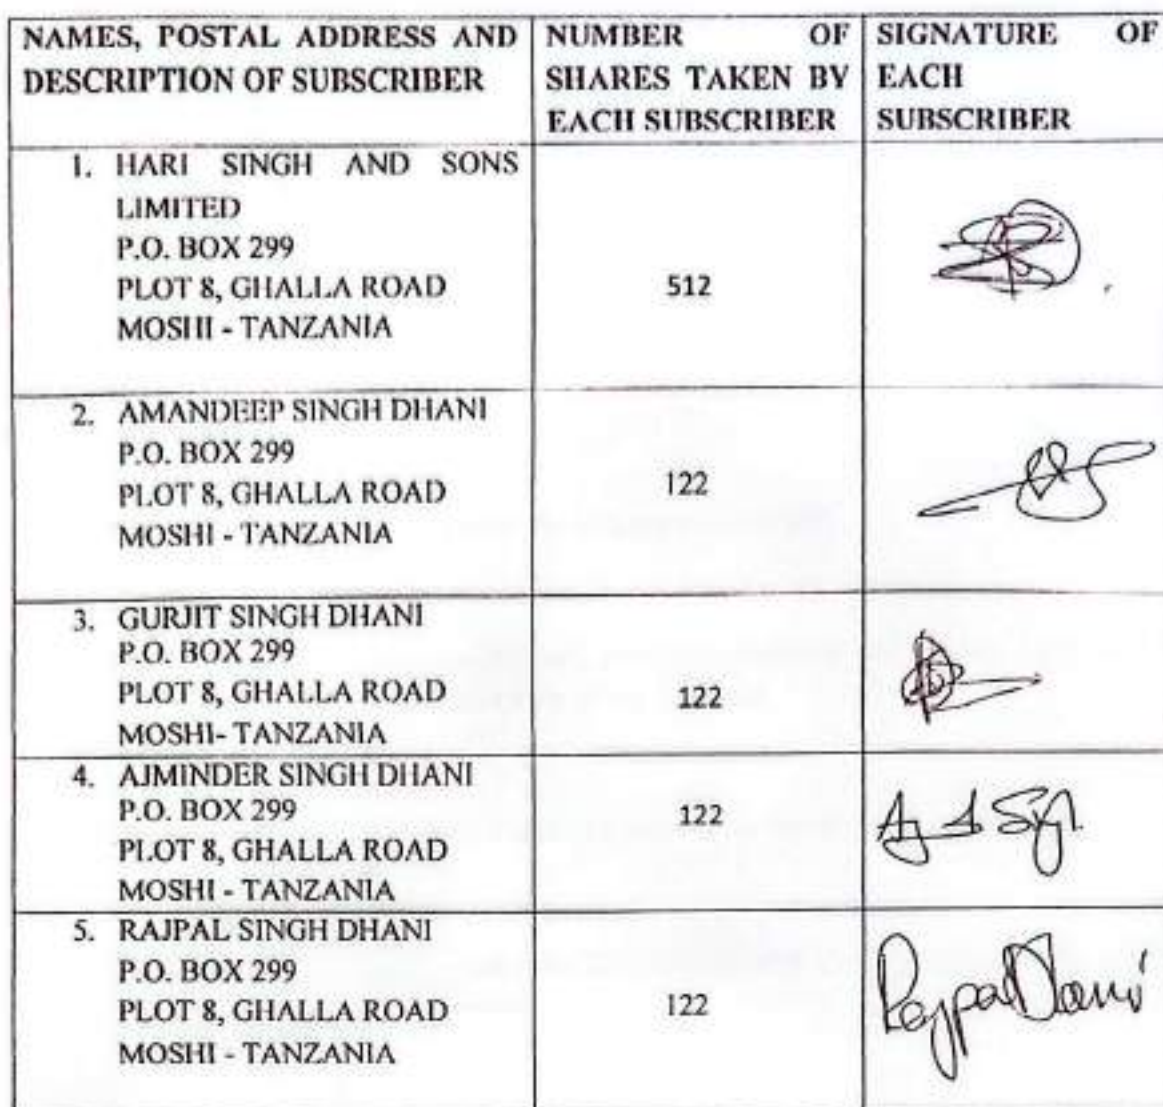 NAMES, POSTAL ADDRESS AND
DESCRIPTION OF SUBSCRIBER
NUMBER OF
SHARES TAKEN BY
EACH SUBSCRIBER
SIGNATURE OF
EACH
SUBSCRIBER
1. HARI SINGH AND SONS
LIMITED
P.O. BOX 299
PLOT 8, GHALLA ROAD
MOSHI - TANZANIA
512
2. AMANDEEP SINGH DHANI
P.O. BOX 299
PLOT 8, GHALLA ROAD
MOSHI - TANZANIA
122
3. GURJIT SINGH DHANI
P.O. BOX 299
PLOT 8, GHALLA ROAD
MOSHI- TANZANIA
122
4. AJMINDER SINGH DHANI
P.O. BOX 299
PLOT 8, GHALLA ROAD
MOSHI - TANZANIA
122
5. RAJPAL SINGH DHANI
P.O. BOX 299
PLOT 8, GHALLA ROAD
MOSHI - TANZANIA
122
Rajpal Dhani